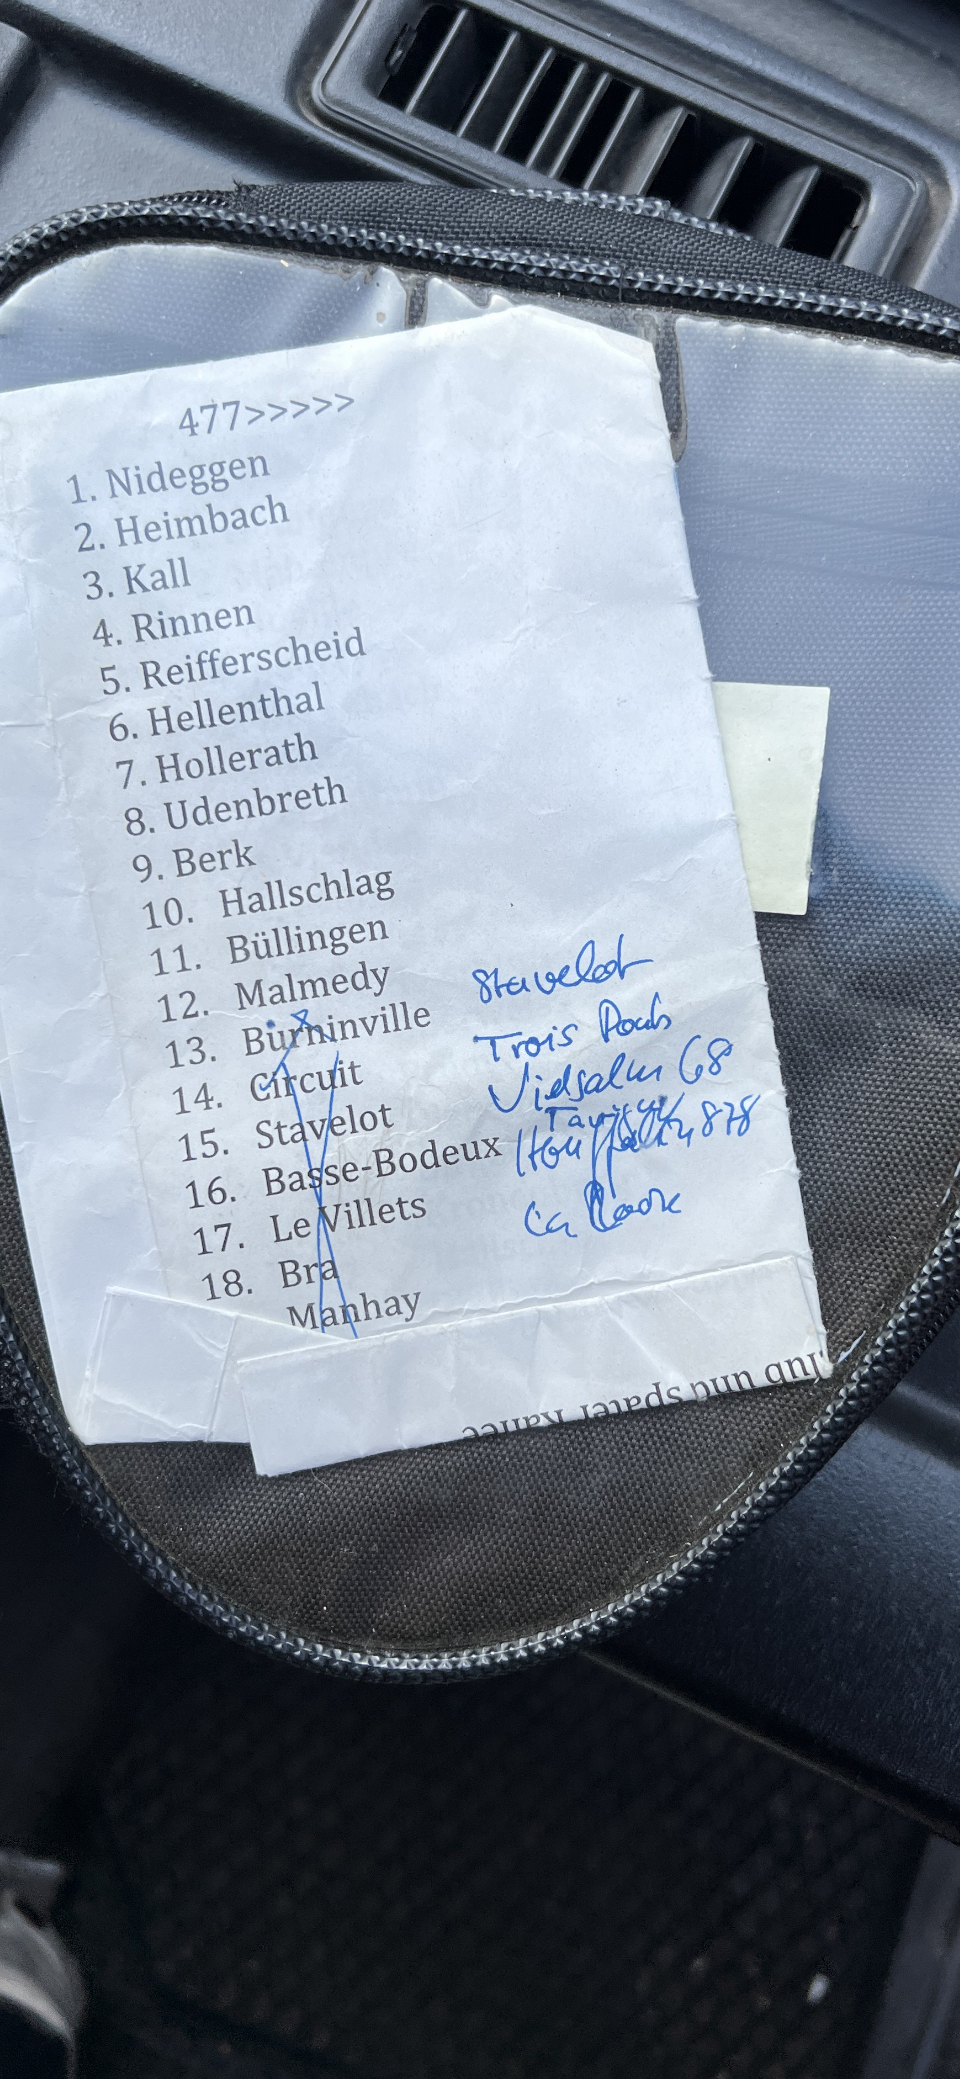 477>>>>>
1. Nideggen
2. Heimbach
3. Kall
4. Rinnen
5. Reifferscheid
6. Hellenthal
7. Hollerath
8. Udenbreth
9. Berk
10. Hallschlag
11. Büllingen
12. Malmedy
13. Burninville
14. Circuit
15. Stavelot
16. Basse-Bodeux
17. Le Villets
18. Bra
Manhay
Stavelot
Trois Ponts
Vielsalm 68
878
La Roche
und später Kaffee